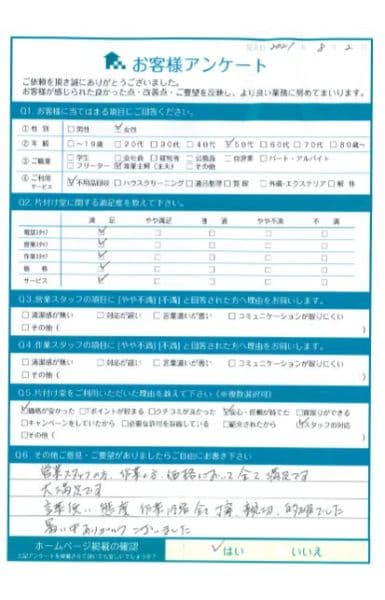 記入日 2021 年 8 月 2 日
お客様アンケート
ご依頼を頂き誠にありがとうございました。
お客様が感じられた良かった点・改善点・ご要望を反映し、より良い業務に努めてまいります。
Q1. お客様に当てはまる項目にご回答ください。
① 性 別 □男性 ☑女性
② 年 齢 □～19歳 □20代 □30代 □40代 ☑50代 □60代 □70代 □80歳～
③ ご職業 □学生 □会社員 □経営者 □公務員 □自営業 □パート・アルバイト
□フリーター ☑専業主婦(主夫) □その他
④ ご利用サービス ☑不用品回収 □ハウスクリーニング □遺品整理 □買取 □外構・エクステリア □解体
Q2. 片付け堂に関する満足度を教えて下さい。
満足 やや満足 普通 やや不満 不満
電話スタッフ ☑ □ □ □ □
営業スタッフ ☑ □ □ □ □
作業スタッフ ☑ □ □ □ □
価格 ☑ □ □ □ □
サービス ☑ □ □ □ □
Q3. 営業スタッフの項目に [やや不満] [不満] と回答された方へ理由をお伺いします。
□清潔感が無い □対応が遅い □言葉遣いが悪い □コミュニケーションが取りにくい
□その他 (
Q4. 作業スタッフの項目に [やや不満] [不満] と回答された方へ理由をお伺いします。
□清潔感が無い □対応が遅い □言葉遣いが悪い □コミュニケーションが取りにくい
□その他 (
Q5. 片付け堂をご利用いただいた理由を教えて下さい(※複数選択可)
☑価格が安かった □ポイントが貯まる □クチコミが良かった ☑安心・信頼が持てた □買取りができる
□キャンペーンをしていたから □必要な許可を取得している □紹介されたから ☑スタッフの対応
□その他(
Q6. その他ご意見・ご要望がありましたらご自由にお書き下さい
営業スタッフの方、作業の方、価格において全て満足です
大満足です
言葉使い 態度 作業内容 全て丁寧、親切、的確でした
暑い中ありがとうございました
ホームページ掲載の確認 ☑はい いいえ
上記アンケートを掲載させて頂いても宜しいでしょうか?